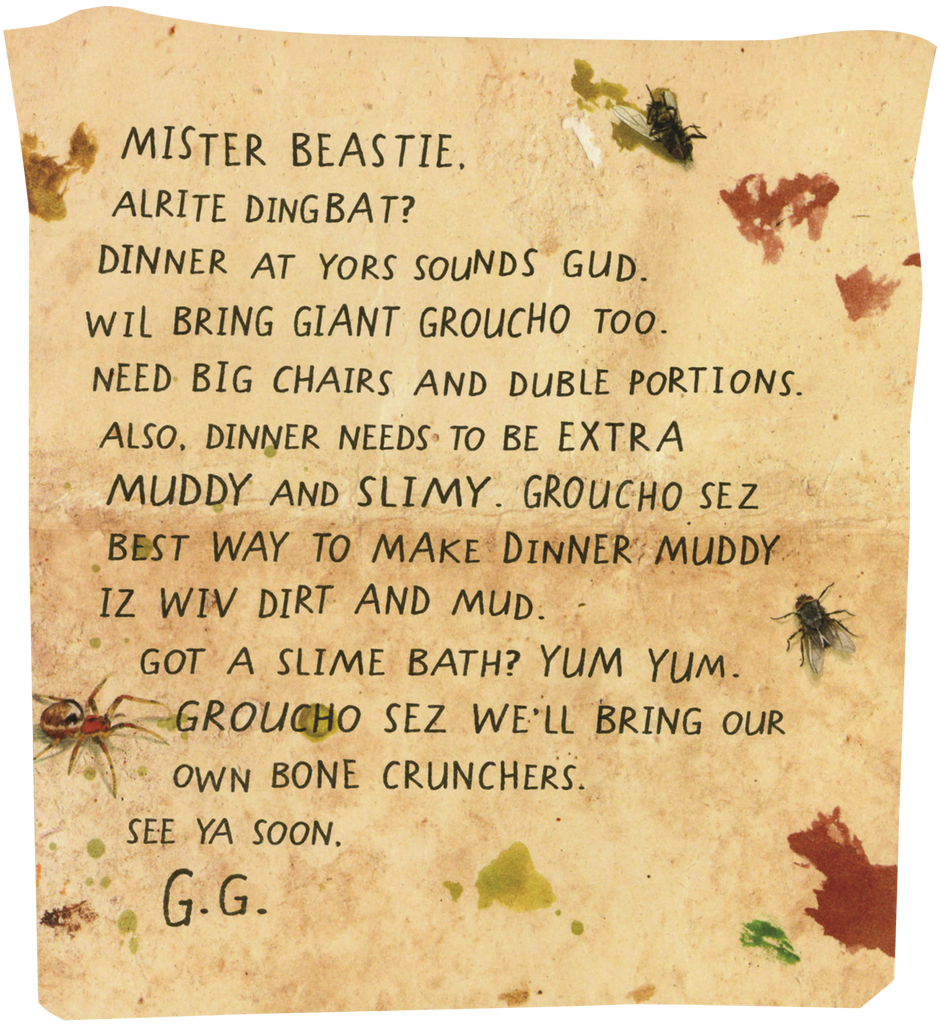 MISTER BEASTIE,
ALRITE DINGBAT?
DINNER AT YORS SOUNDS GUD.
WIL BRING GIANT GROUCHO TOO.
NEED BIG CHAIRS AND DUBLE PORTIONS.
ALSO, DINNER NEEDS TO BE EXTRA
MUDDY AND SLIMY. GROUCHO SEZ
BEST WAY TO MAKE DINNER MUDDY
IZ WIV DIRT AND MUD.
GOT A SLIME BATH? YUM YUM.
GROUCHO SEZ WE'LL BRING OUR
OWN BONE CRUNCHERS.
SEE YA SOON,
G.G.